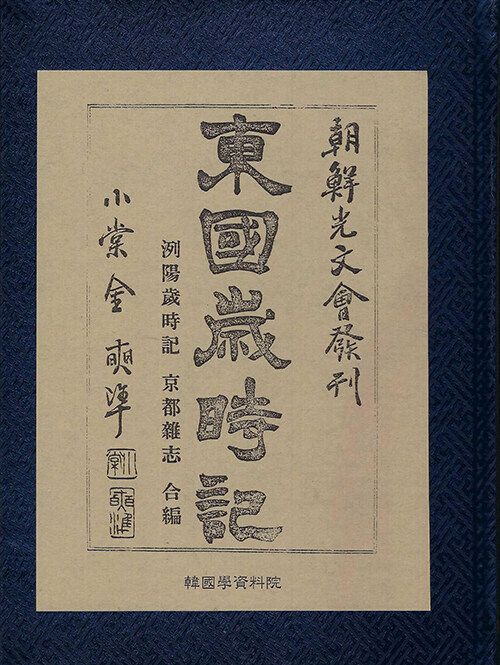 朝鮮光文會發刊
東國歲時記
洌陽歲時記 京都雜志 合編
小棠 金奭準
韓國學資料院